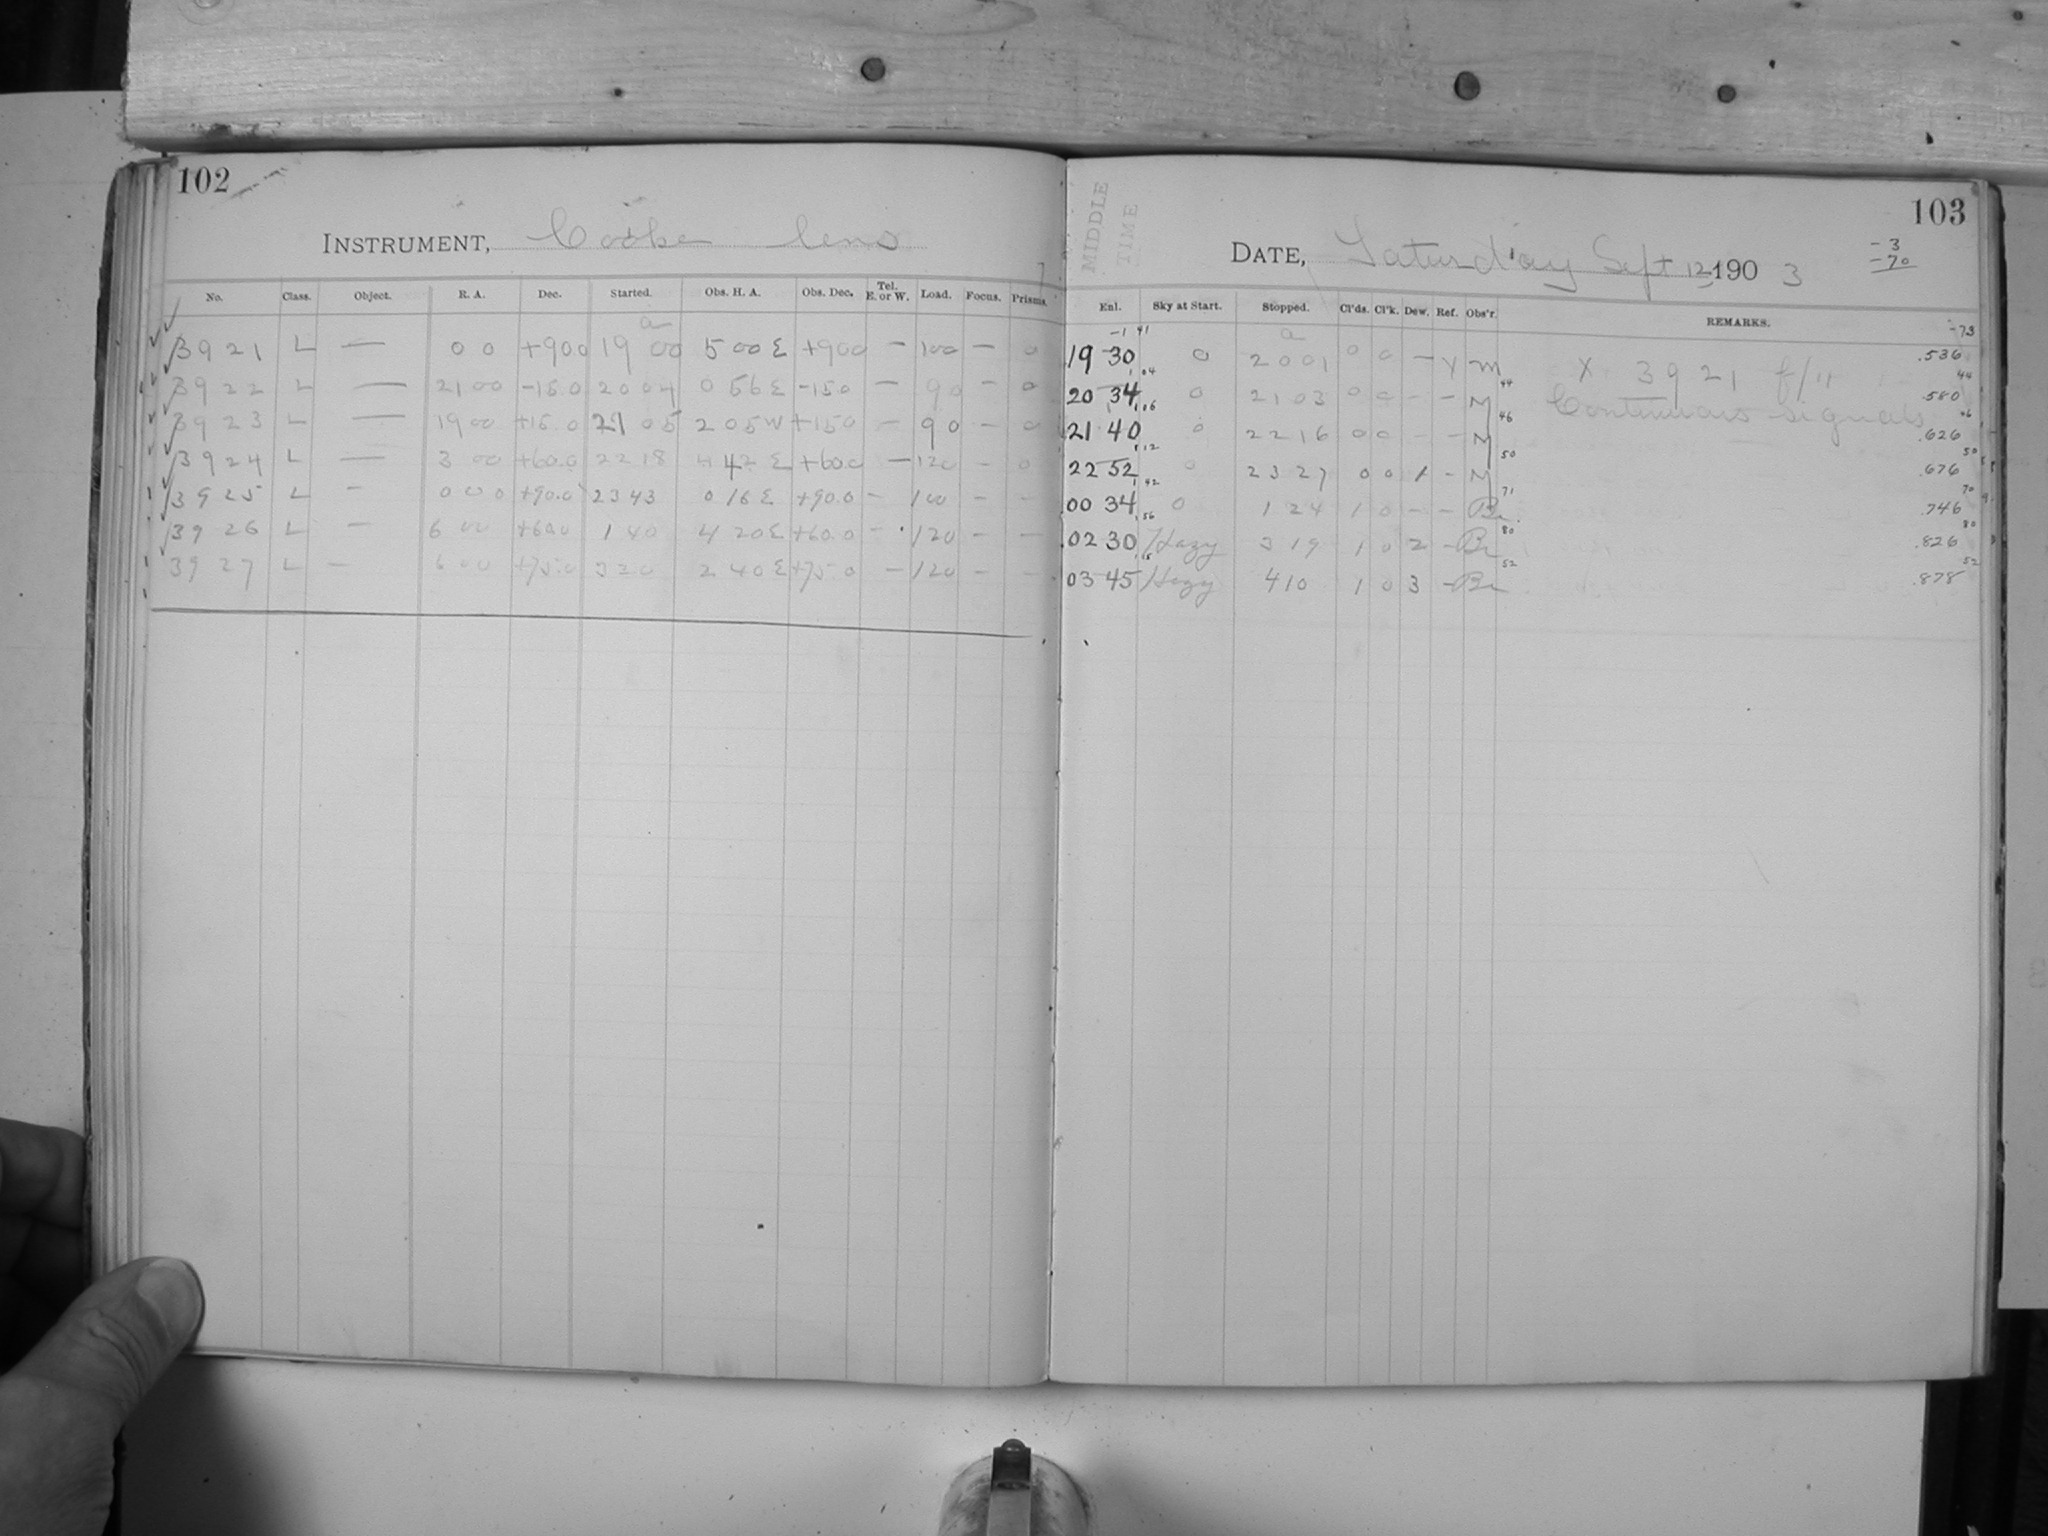 102
INSTRUMENT, Cooke lens
No. Class. Object. R. A. Dec. Started. Obs. H. A. Obs. Dec. Tel. E. or W. Load. Focus. Prisms.
a
3921 L — 0 0 +900 19 00 5 00 E +900 — 100 — 0
3922 L — 21 00 -15.0 20 04 0 56 E -150 — 90 — 0
3923 L — 19 00 +15.0 21 05 2 05 W +150 — 90 — 0
3924 L — 3 00 +60.0 22 18 4 42 E +60.0 — 120 — 0
3925 L — 0 0 0 +90.0 23 43 0 16 E +90.0 — 100 — —
3926 L — 6 00 +60.0 1 40 4 20 E +60.0 — 120 — —
3927 L — 6 00 +75.0 3 20 2 40 E +75.0 — 120 — —
103
MIDDLE
TIME
DATE, Saturday Sept 12 1903
-3
-70
-73
Enl. Sky at Start. Stopped. Cl'ds. Cl'k. Dew. Ref. Obs'r. REMARKS.
-1 41
a
19 30 0 20 01 0 0 — Y M X 3921 f/11 .536
04 44 44
20 34 0 21 03 0 0 — — M Continuous signals .580
06 46 46
21 40 0 22 16 0 0 — — M .626
12 50 50
22 52 0 23 27 0 0 1 — M .676
42 71 70
00 34 0 1 24 1 0 — — Br. .746
56 80 80
02 30 Hazy 3 19 1 0 2 — Br .826
15 52 52
03 45 Hazy 4 10 1 0 3 — Br .878